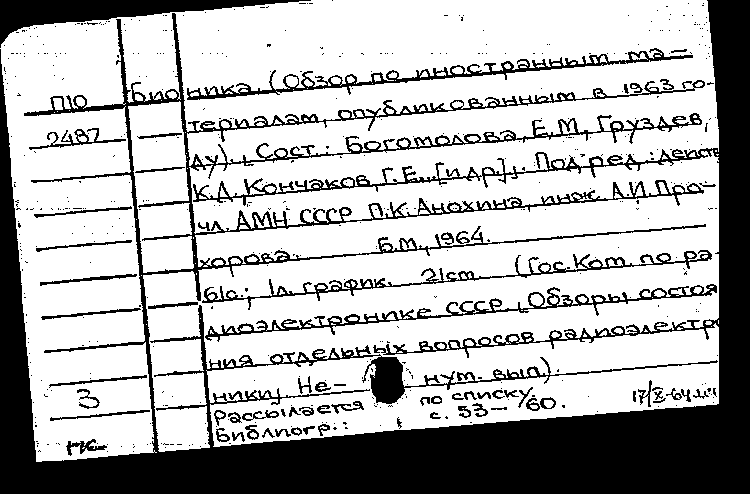 П10 Бионика. (Обзор по иностранным ма-
2487 териалам, опубликованным в 1963 го-
ду)., Сост.: Богомолова, Е.М., Груздев,
К.Д., Кончаков, Г.Е., [и др.],. Под ред.: действ
чл. АМН СССР П.К. Анохина, инж. А.И. Про-
хорова. Б.М., 1964.
61с.; 1л. график. 21cm. (Гос. Ком. по ра-
диоэлектронике СССР. [Обзоры состоя
ния отдельных вопросов радиоэлектро
ники]. Не- нум. вып).
3 Рассылается по списку.
Библиогр.: с. 53-60. 17/X-64